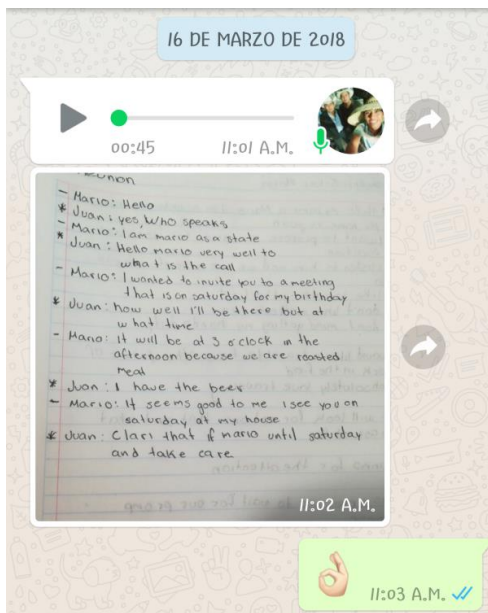 16 DE MARZO DE 2018
00:45 11:01 A.M.
- Mario: Hello
* Juan: yes, who speaks
- Mario: I am mario as a state
* Juan: Hello mario very well to
what is the call
- Mario: I wanted to invite you to a meeting
that is on saturday for my birthday
* Juan: how well I'll be there but at
what time
- Mario: it will be at 3 o'clock in the
afternoon because we are roasted
meat
* Juan: I have the beer
- Mario: It seems good to me I see you on
saturday at my house
* Juan: Clari that if mario until saturday
and take care
11:02 A.M.
11:03 A.M.